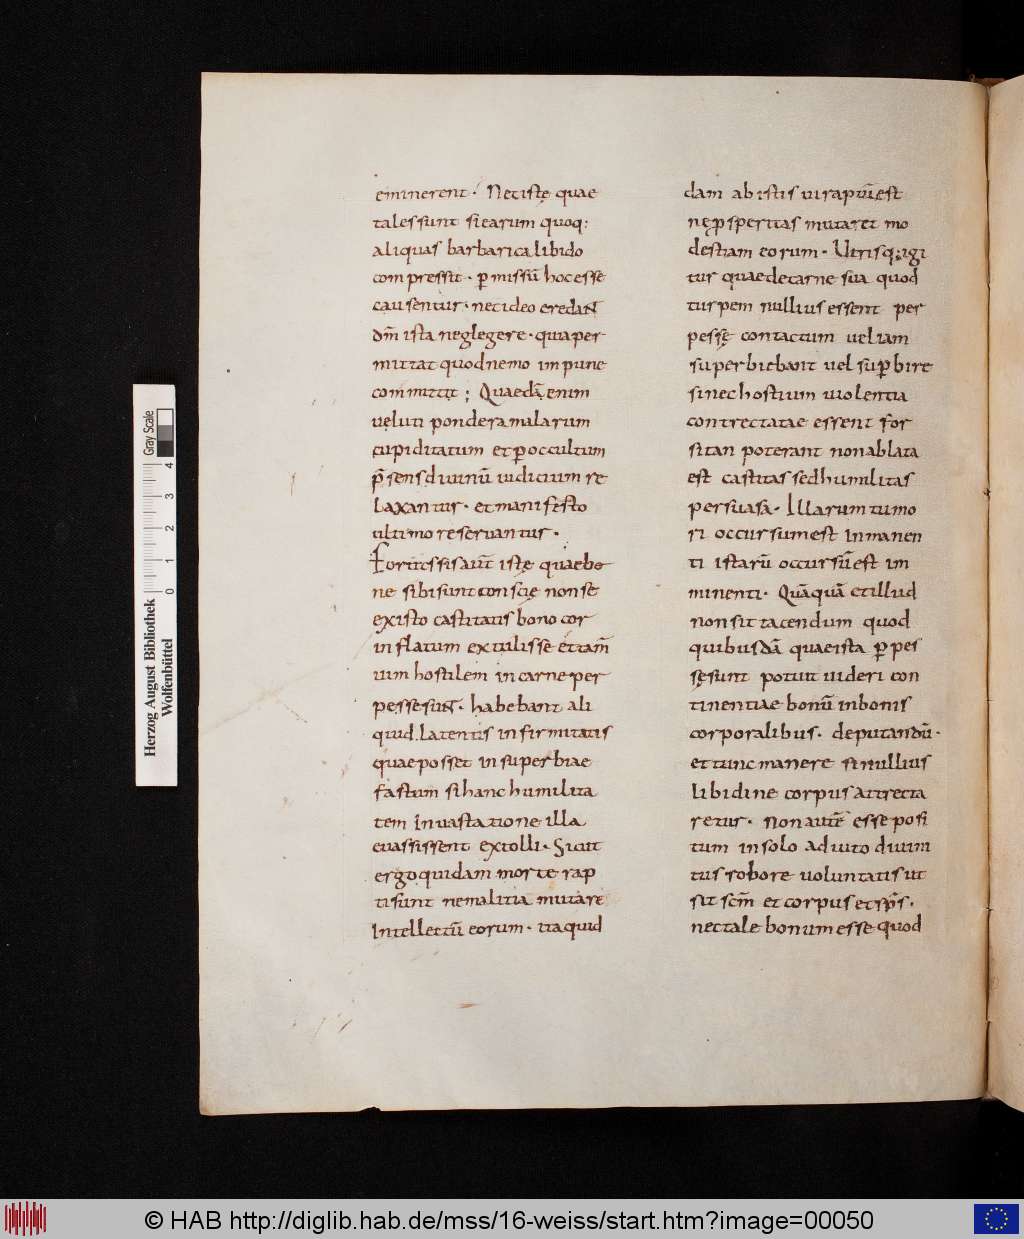 eminerent. Nec istę quae
tales sunt si earum quoq:
aliquas barbarica libido
compressit. p̱missū hoc esse
causentur. nec ideo credant
dm̄ ista neglegere. quia per
mittat quod nemo impune
committit; Quaedā enim
veluti pondera malarum
cupiditatum et p̱ occultum
p̄sens divinū iudicium re
laxantur. et manifesto
ultimo reservantur.
Fortassis aūt istę quae be
ne sibi sunt conscię non se
ex isto castitatis bono cor
inflatum extulisse et tam̄
vim hostilem in carne per
pesse sunt. habebant ali
quid latentis infirmitatis
quae posset in superbiae
fastum si hanc humilita
tem in vastatione illa
evassissent extolli. Sicut
ergo quidam morte rap
ti sunt ne malitia mutare
Intellectū eorum. ita quid
dam ab istis vi raptū est
ne p̱speritas mutaret mo
destiam eorum. Utrisq; igi
tur quae de carne sua quod
turpem nullius essent per
pessę contactum vel iam
superbiebant vel sup̱bire
si nec hostium violentia
contrectatae essent for
sitan poterant non ablata
est castitas sed humilitas
persuasa. Illarum tumo
ri occursum est inmanen
ti istarū occursū est im
minenti. Quāquā et illud
non sit tacendum quod
quibusdā quae ista p̱pes
sę sunt potuit videri con
tinentiae bonū in bonis
corporalibus. deputandū.
et tunc manere si nullius
libidine corpus attrecta
retur. Non autē esse posi
tum in solo adiuto divini
tus robore voluntatis ut
sit scm̄ et corpus et sps̄.
nec tale bonum esse quod
Herzog August Bibliothek
Wolfenbüttel
0 1 2 3 4
Gray Scale
© HAB http://diglib.hab.de/mss/16-weiss/start.htm?image=00050